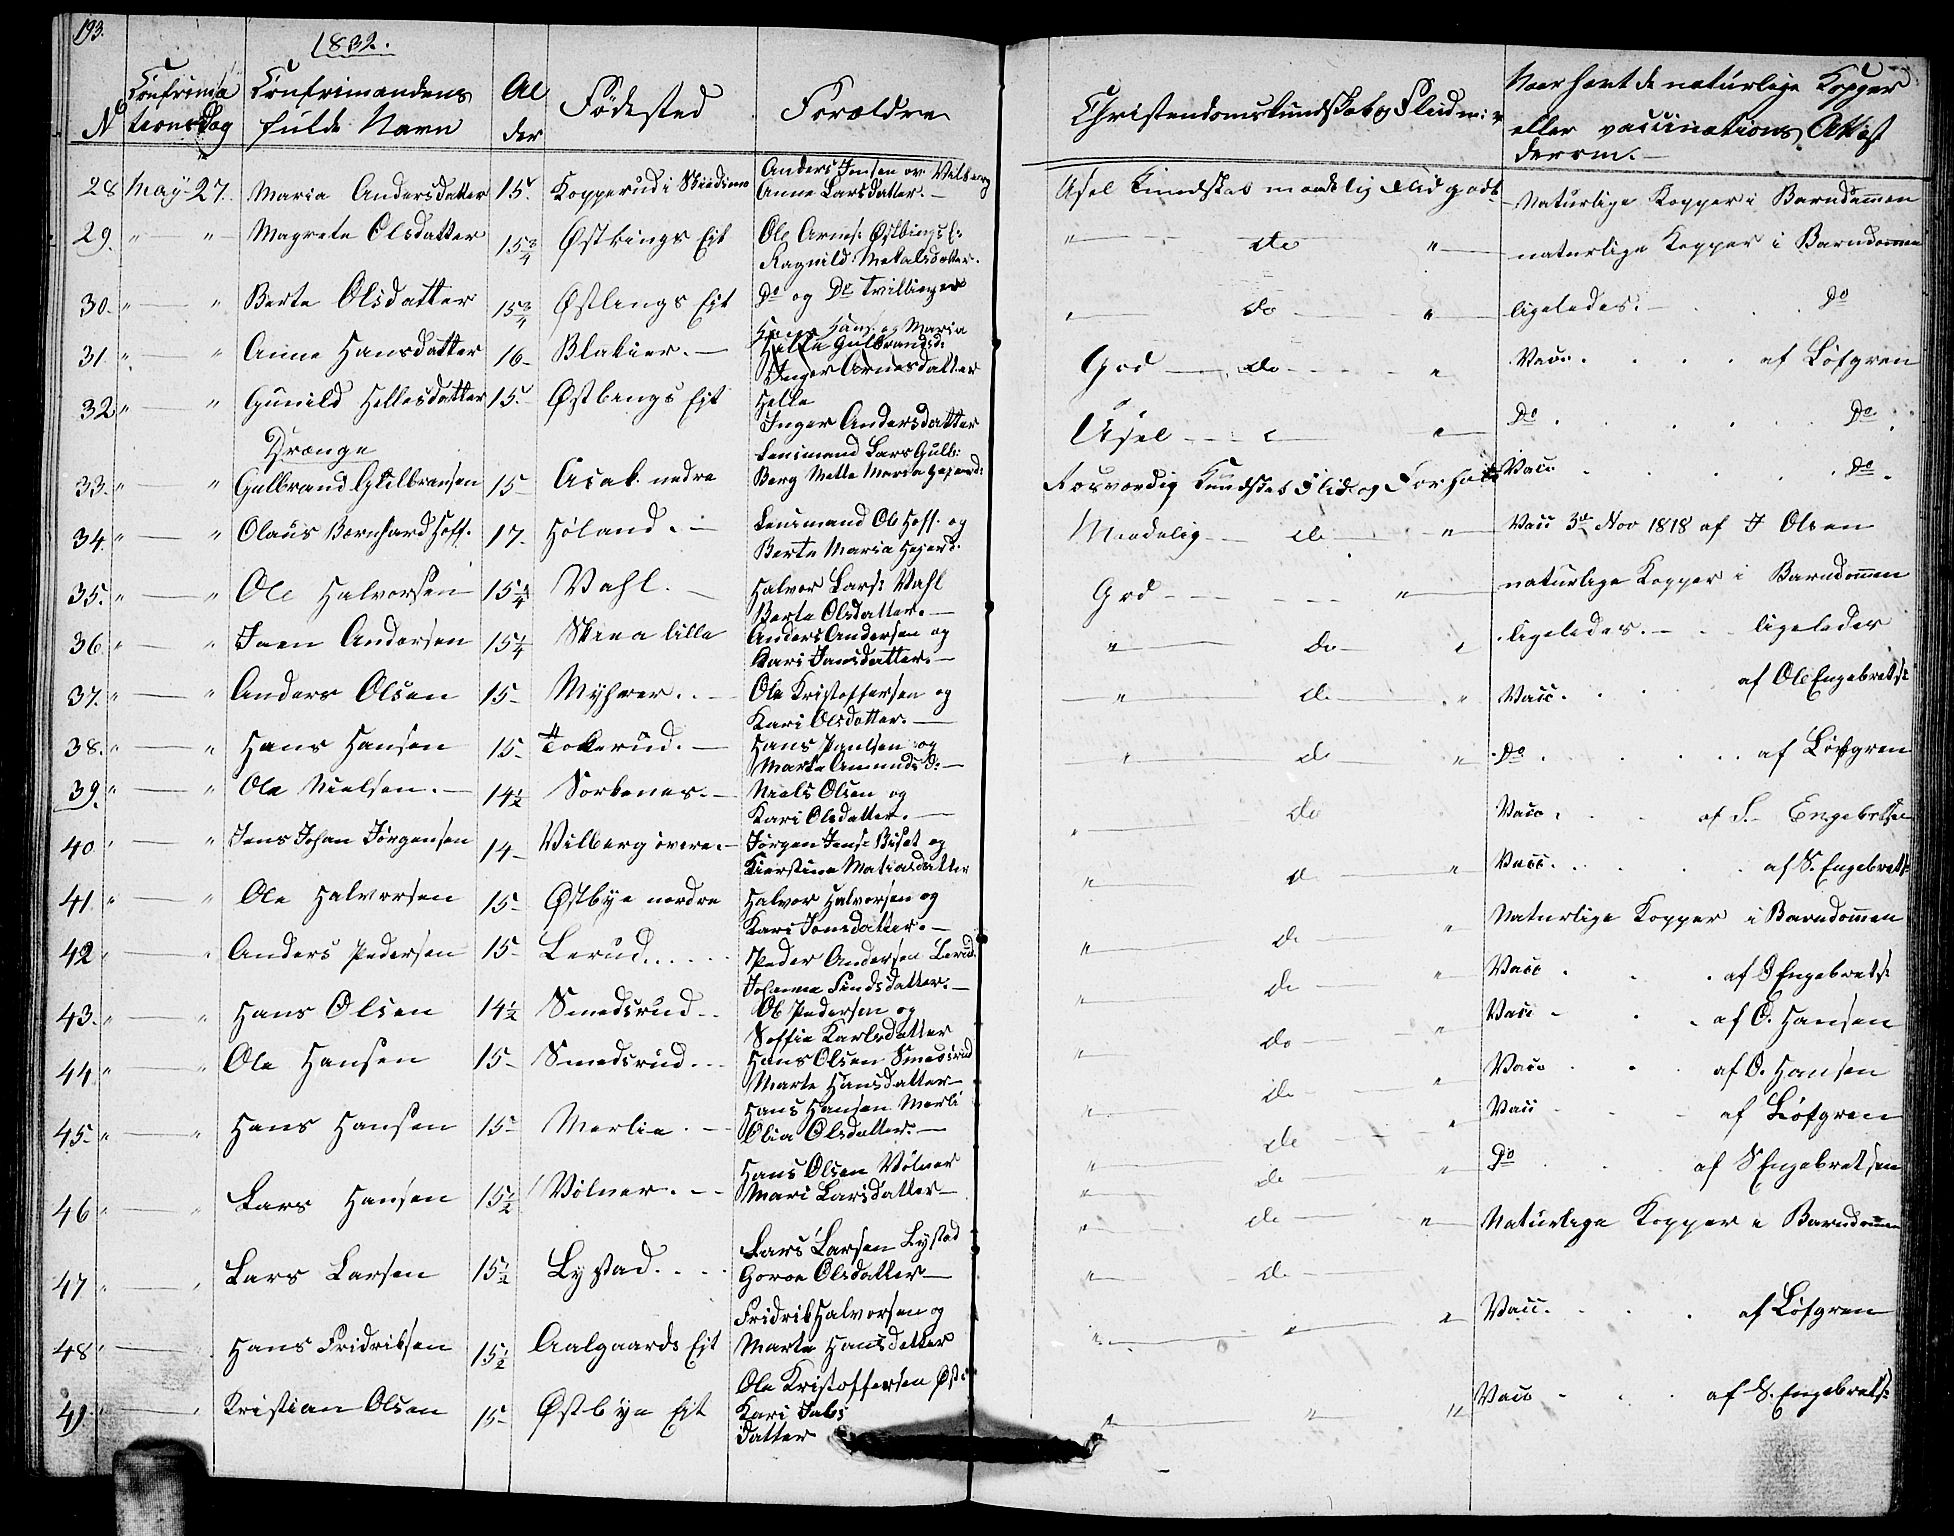 193.
1832.
N Confirma Confirmandens Al Fødested Forældre Christendomskundskab Fliid Naar havt de naturlige Kopper
tions Dag fulde Navn der eller vaccinations Attest
derom.
28 May 27. Maria Andersdatter 15. Kopperud i Anders Jensen ov Vilberg
Anne Larsdatter. Usel Kundskab maadelig Flid godt Naturlige Kopper i Barndommen
29. " " Magrete Olsdatter 15 3/4 Østbings Ejt Ole Arnes: Østbings E: " do " naturlige Kopper i Barndommen
Ragnild Mekalsdatter.
30. " " Berte Olsdatter 15 3/4 Østbings Ejt Do og Do Tvillinger " do " ligeledes. Do
31. " " Anne Hansdatter 16 Blakier. Hans Hans: og Maria
Helle Gulbrandsd:
Inger Arnesdatter God do " Vacc. af Løfgren
32 " " Gunild Hellesdatter 15 Østbings Ejt Helle
Inger Andersdatter Usel " " Do Do
Drænge
33. " " Gulbrand Gulbransen 15 Asak nedre Lensmand Lars Gulb:
Berg Mette Maria Forsvordig Kundskab Flid og Forhold Vacc Do
34. " " Olaus Bernhard Hoff. 17. Høland. Lensmand Ole Hoff. og
Berte Maria Maadelig do " Vacc 3die Nov 1818 af J Olsen
35. " " Ole Halvorsen 15 1/4 Vahl. Halvor Lars: Vahl
Berte Olsdatter. God " naturlige Kopper i Barndommen
36. " " Joen Andersen 15 1/4 Skrea lille Anders Andersen og
Kari Jansdatter. " do " ligeledes. ligeledes
37. " " Anders Olsen 15 Myhrer. Ole Kristoffersen og
Kari Olsdatter. " do " Vacc. af Ole Engebrets:
38. " " Hans Hansen 15 Tokerud. Hans Paulsen og
Marte Amunds D: " do " Do af Løfgren
39. " " Ole Nielsen. 14 1/2 Sorkenes. Niels Olsen og
Kari Olsdatter. " do Vacc. af S. Engebretsen
40 " " Jens Johan Jørgensen 14 Vilberg øvere. Jørgen Jens: Biset og
Kierstine Matiasdatter " do " Vacc. af S. Engebrets:
41. " Ole Halvorsen 15 Østbye nordre Halvor Halvorsen og
Kari Jonsdatter. " do " Naturlige Kopper i Barndommen
42 " " Anders Pedersen 15 Lerud Peder Andersen Lerud
Johanne Findsdatter. " do " Vacc af S Engebrets:
43. " " Hans Olsen 14 1/2 Smedsrud Ole Pedersen og
Soffie Karlsdatter " do " Vacc af O. Hansen
44 " " Ole Hansen 15 Smedsrud Hans Olsen Smedsrud
Marte Hansdatter " do " Vacc af O. Hansen
45. " " Hans Hansen 15 Merlie. Hans Hansen Merli
Olia Olsdatter. " do " Vacc af Løfgren
46 " " Lars Hansen 15 1/2 Volner. Hans Olsen Volner
Mari Larsdatter " do " Do af S Engebretsen
47 " " Lars Larsen 15 1/2 Lystad. Lars Larsen Lystad
Goroe Olsdatter " do " Naturlige Kopper i Barndommen
48 " Hans Fridriksen 15 1/2 Aalgaards Ejt Fridrik Halvorsen og
Marte Hansdatter " " " Vacc. af Løfgren
49 " " Kristian Olsen 15 Østbye Ejt Ole Kristoffersen Øst:
Kari Jaks
datter " " " Vacc af S. Engebrets: